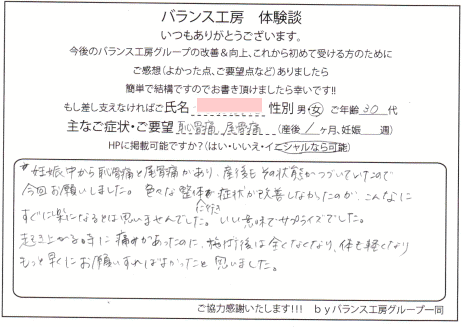 バランス工房　体験談
いつもありがとうございます。
今後のバランス工房グループの改善＆向上、これから初めて受ける方のために
ご感想（よかった点、ご要望点など）ありましたら
簡単で結構ですのでお書き頂けましたら幸いです!!
もし差し支えなければご氏名 性別 男・女 ご年齢 30 代
主なご症状・ご要望 恥骨痛、尾骨痛 （産後 1 ヶ月、妊娠 週）
HPに掲載可能ですか？（はい・いいえ・イニシャルなら可能）
妊娠中から恥骨痛と尾骨痛があり、産後もその状態がつづいていたので
今回お願いしました。色々な整体に行き症状が改善しなかったのが、こんなに
すぐに楽になるとは思いませんでした。いい意味でサプライズでした。
起き上がる時に痛みがあったのに、施術後は全くなくなり、体も軽くなり
もっと早くにお願いすればよかったと思いました。
ご協力感謝いたします!!! byバランス工房グループ一同